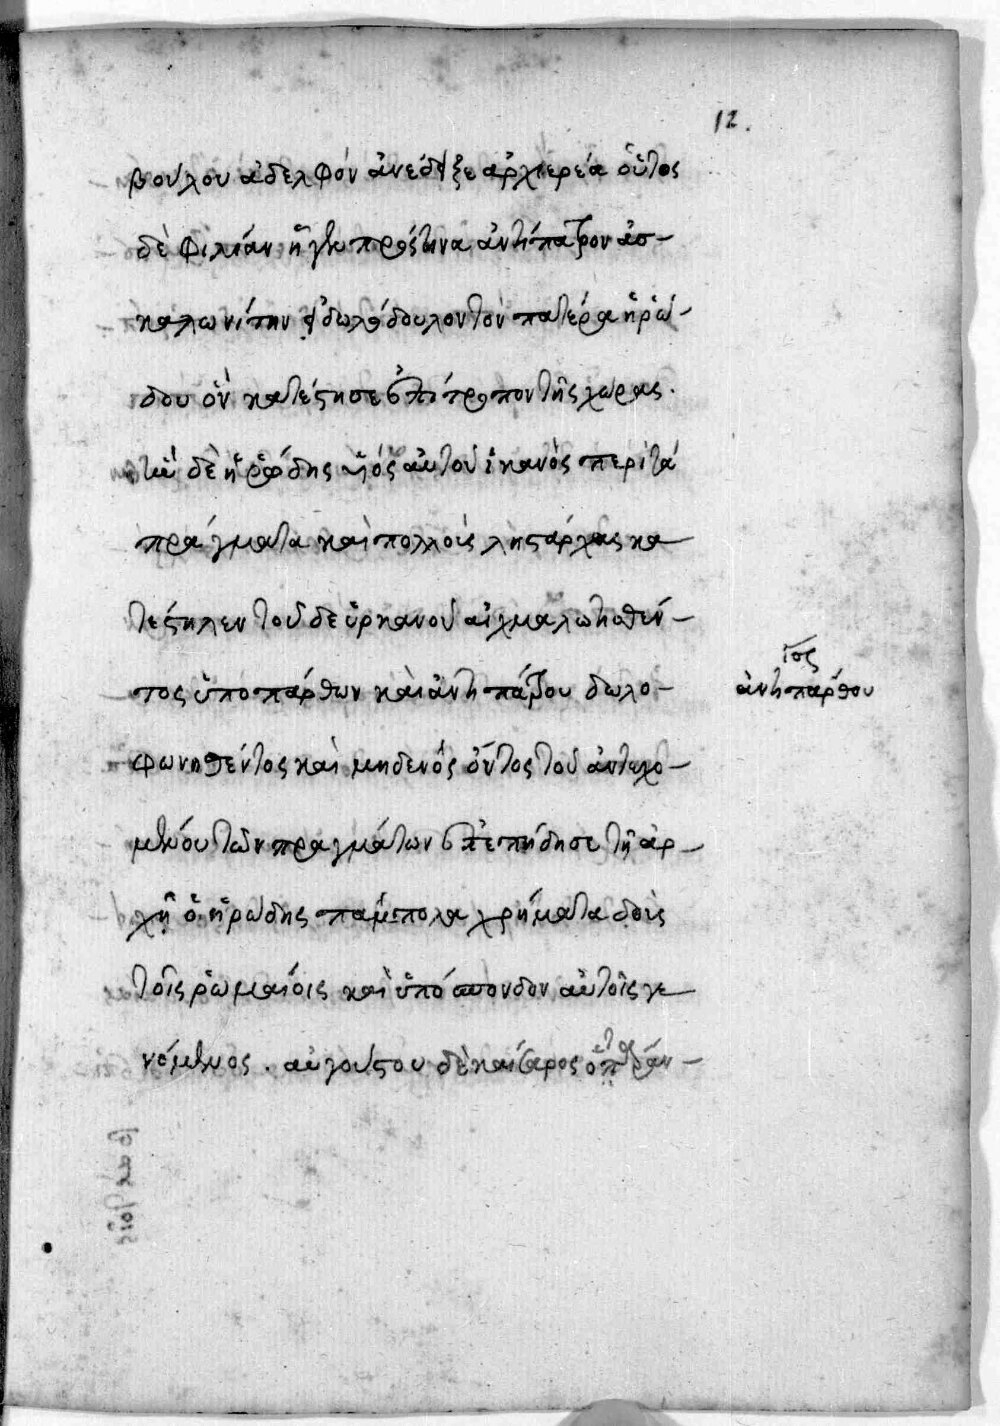 12.
βούλου ἀδελφόν ἀνέδειξε ἀρχιερέα οὗτος
δὲ φιλίαν ἦγεν πρός τινα ἀντίπατρον ἀσ-
καλωνίτην εἰδωλόδουλον τὸν πατέρα ἡρώ-
δου ὃν κατέστησε ἐπίτροπον τῆς χώρας.
δὲ ἡρώδης αὐτοῦ ἱκανὸς περὶ τὰ
πράγματα καὶ πολλοὺς ληστάρχας κα
τέστηλεν τοῦ δὲ ὑρκανοῦ αἰχμαλωτισθέν-
τος ὑπὸ πάρθων καὶ ἀντιπάτρου δωλο-
φωνηθέντος καὶ μηδενὸς ὄντος τοῦ ἀντεχο-
μένου τῶν πραγμάτων ἐπεπήδησε τῇ ἀρ-
χῇ ὁ ἡρώδης πάμπολα χρήματα δοὺς
τοῖς ῥωμαίοις καὶ ὑπόσπονδον αὐτοῖς γε
νόμενος. αὐγούστου δὲ καίσαρος
ἀντιπάρθου